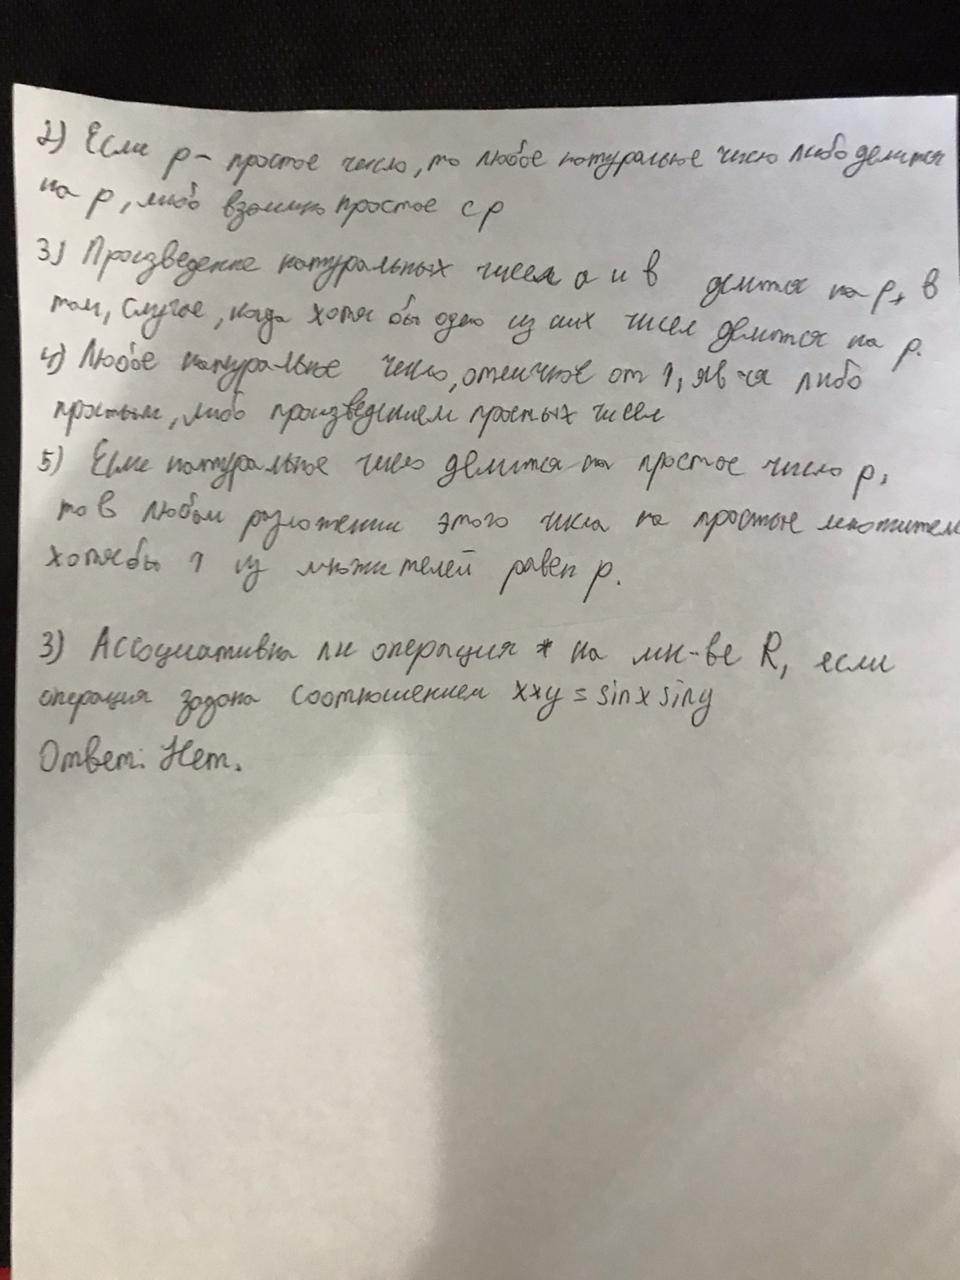 2) Если p - простое число, то любое натуральное число либо делится
на p, либо взаимно простое с p
3) Произведение натуральных чисел a и b делится на p, в
том, случае, когда хотя бы одно из них чисел делится на p.
4) Любое натуральное число, отличное от 1, яв-ся либо
простым, либо произведением простых чисел
5) Если натуральное число делится на простое число p,
то в любом разложении этого числа на простые множители
хотя бы 1 из множителей равен p.
3) Ассоциативна ли операция * на мн-ве R, если
операция задана соотношением x*y = sinx siny
Ответ: Нет.